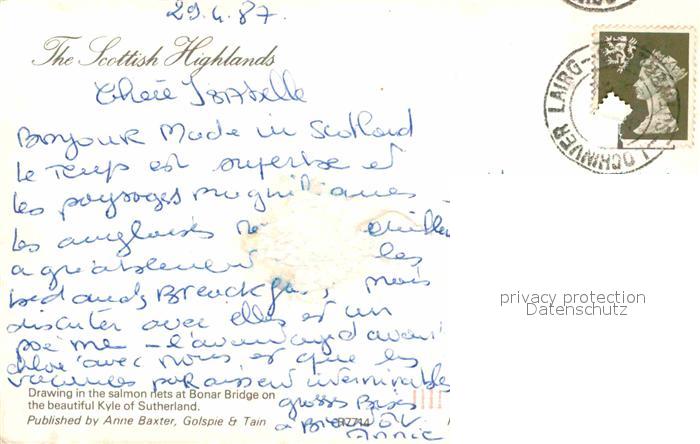 29.4.87.
The Scottish Highlands
Chère Isabelle
Bonjour Made in Scotland
Le temps est superbe et
les paysages magnifiques
les anglaises
agréablement les
bed and Breackfast, mais
discuter avec elles est un
poème - l'avantage d'avoir
Chloé avec nous est que les
vacances paraissent interminables
grosses Bises
Annie
Drawing in the salmon nets at Bonar Bridge on
the beautiful Kyle of Sutherland.
Published by Anne Baxter, Golspie & Tain
LAIRG-
LOCHINVER
privacy protection
Datenschutz